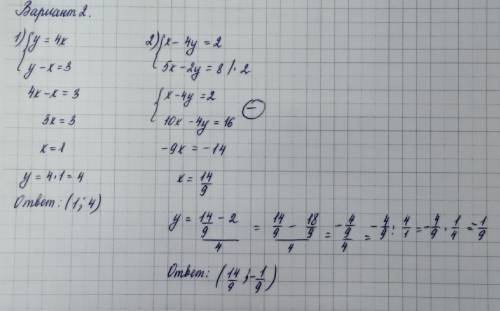 Вариант 2.
1) { y = 4x
y - x = 3
4x - x = 3
3x = 3
x = 1
y = 4 * 1 = 4
Ответ: (1; 4)
2) { x - 4y = 2
5x - 2y = 8 / · 2
{ x - 4y = 2
10x - 4y = 16 (-)
-9x = -14
x = 14/9
y = (14/9 - 2)/4 = (14/9 - 18/9)/4 = (-4/9)/4 = -4/9 : 4/1 = -4/9 · 1/4 = -1/9
Ответ: (14/9; -1/9)